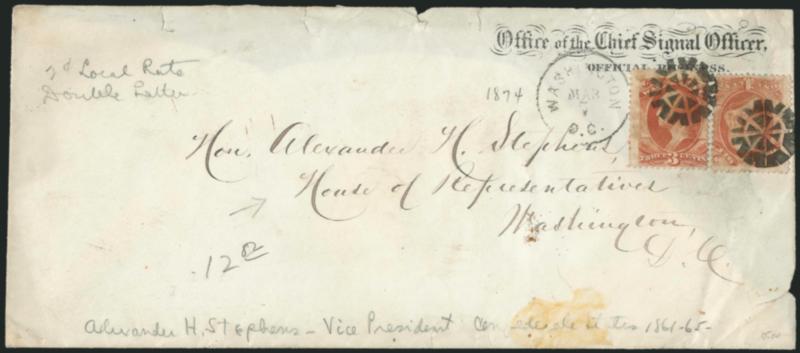 Office of the Chief Signal Officer,
OFFICIAL BUSINESS.
2¢ Local Rate
Double Letter
1874
WASHINGTON
MAR
D.C.
THREE 3 CENTS
Hon. Alexander H. Stephens,
House of Representatives
Washington,
D.C.
12
Alexander H. Stephens - Vice President Confederate States 1861-65-